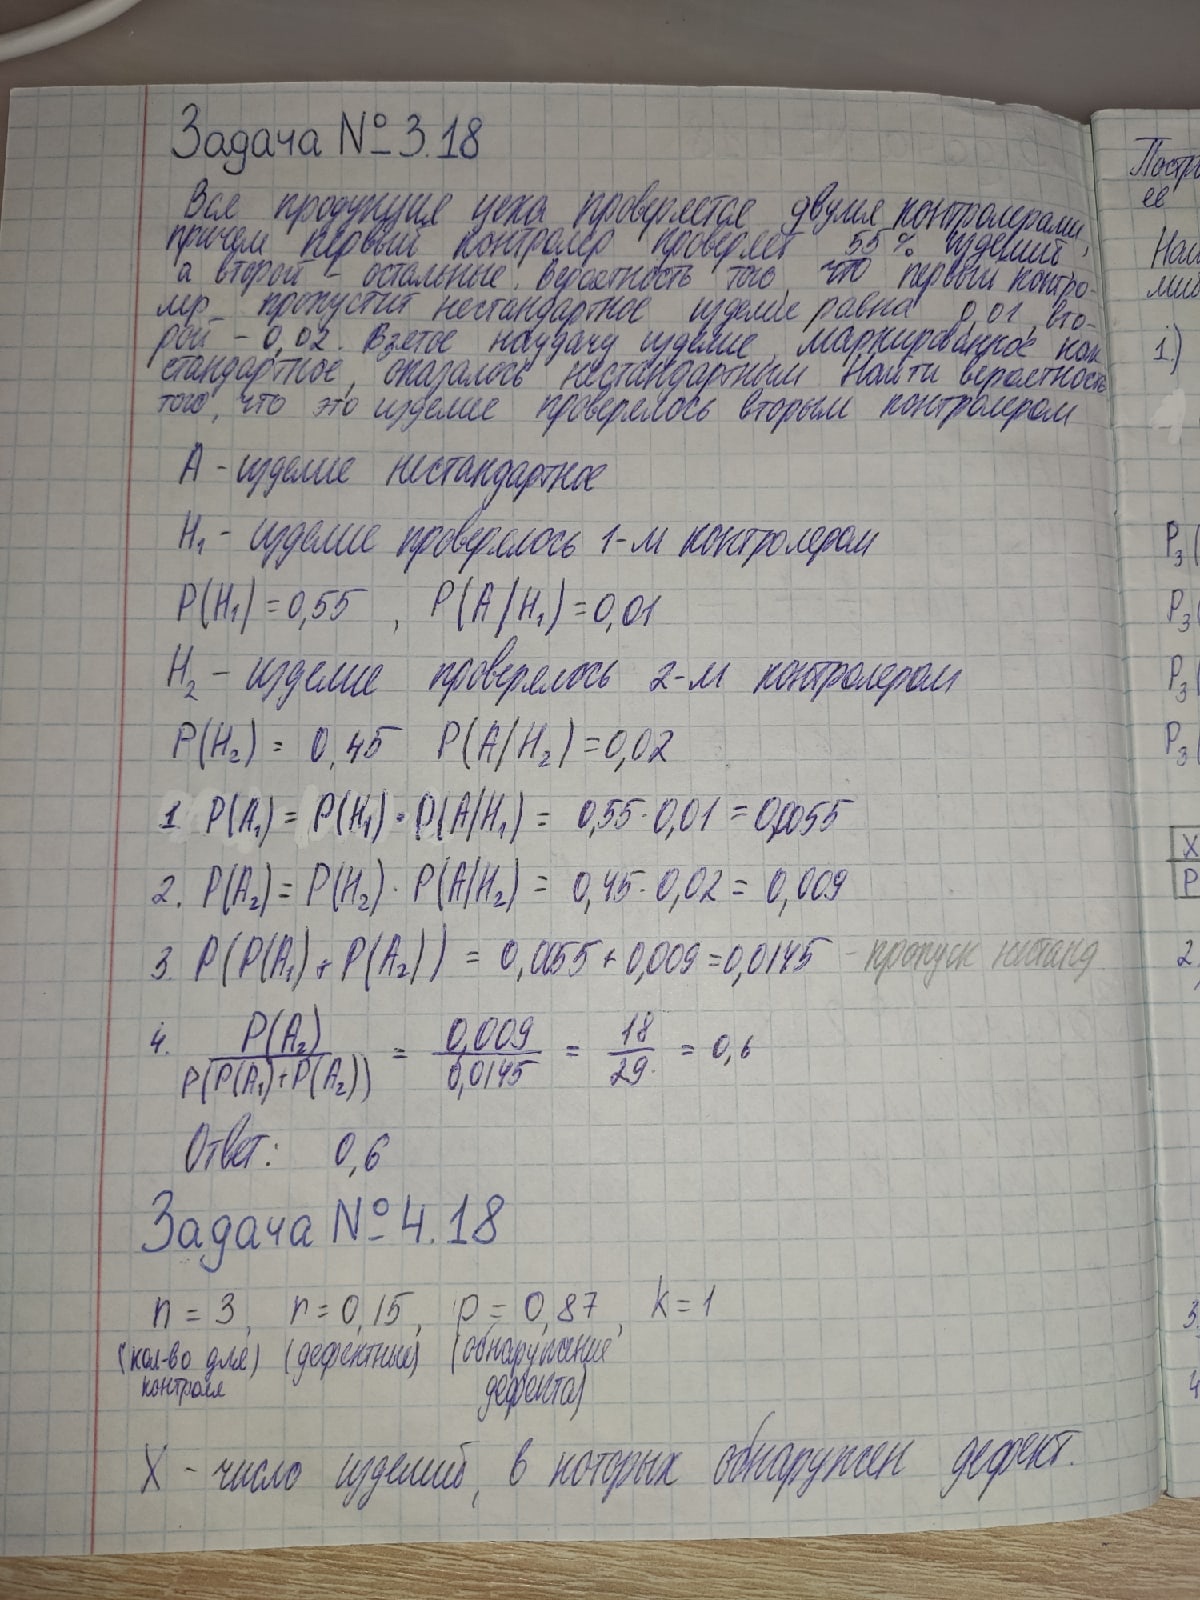 Задача № 3.18
Вся продукция цеха проверяется двумя контролерами,
причем первый контролер проверяет 55 % изделий,
а второй - остальные. Вероятность того, что первый контро-
лер пропустит нестандартное изделие равна 0,01, вто-
рой - 0,02. Взятое наудачу изделие, маркированное как
стандартное, оказалось нестандартным. Найти вероятность
того, что это изделие проверялось вторым контролером
A - изделие нестандартное
H₁ - изделие проверялось 1-м контролером
P(H₁) = 0,55 , P(A/H₁) = 0,01
H₂ - изделие проверялось 2-м контролером
P(H₂) = 0,45 P(A/H₂) = 0,02
1. P(A₁) = P(H₁) · P(A/H₁) = 0,55 · 0,01 = 0,0055
2. P(A₂) = P(H₂) · P(A/H₂) = 0,45 · 0,02 = 0,009
3. P(P(A₁) + P(A₂)) = 0,0055 + 0,009 = 0,0145 - пропуск нестанд
4. P(A₂) / P(P(A₁) + P(A₂)) = 0,009 / 0,0145 = 18 / 29 = 0,6
Ответ: 0,6
Задача № 4.18
n = 3, r = 0,15, p = 0,87, k = 1
(кол-во для контроля) (дефектные) (обнаружение дефекта)
X - число изделий, в которых обнаружен дефект.
Постр
ее
Наи
1.)
P₃(
P₃(
P₃(
P₃(
X
P
2.
3.
4